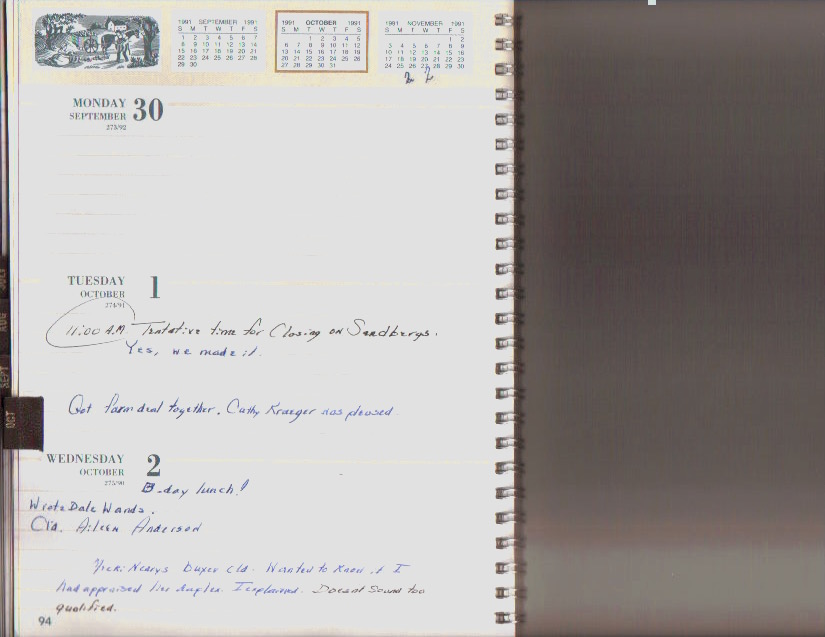 1991 SEPTEMBER 1991
S M T W T F S
1 2 3 4 5 6 7
8 9 10 11 12 13 14
15 16 17 18 19 20 21
22 23 24 25 26 27 28
29 30
1991 OCTOBER 1991
S M T W T F S
1 2 3 4 5
6 7 8 9 10 11 12
13 14 15 16 17 18 19
20 21 22 23 24 25 26
27 28 29 30 31
1991 NOVEMBER 1991
S M T W T F S
1 2
3 4 5 6 7 8 9
10 11 12 13 14 15 16
17 18 19 20 21 22 23
24 25 26 27 28 29 30
2 2
MONDAY 30
SEPTEMBER
273/92
TUESDAY 1
OCTOBER
274/91
11:00 A.M. Tentative time for Closing on Sandbergs.
Yes, we made it.
Got farm deal together. Cathy Kraeger was pleased.
WEDNESDAY 2
OCTOBER
275/90
B-day lunch!
Wrote Dale Wands.
Cld. Aileen Anderson
Nearys buyer cld. Wanted to know if I
had appraised her duplex. I explained. Doesnt sound too
qualified.
94
JULY
AUG
SEPT
OCT